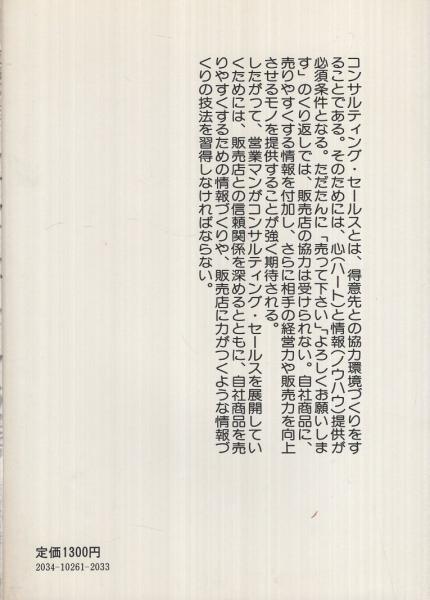 コンサルティング・セールスとは、得意先との協力環境づくりをす
ることである。そのためには、心(ハート)と情報(ノウハウ)提供が
必須条件となる。ただたんに「売って下さい」「よろしくお願いしま
す」のくり返しでは、販売店の協力は受けられない。自社商品に、
売りやすくする情報を付加し、さらに相手の経営力や販売力を向上
させるモノを提供することが強く期待される。
したがって、営業マンがコンサルティング・セールスを展開してい
くためには、販売店との信頼関係を深めるとともに、自社商品を売
りやすくするための情報づくりや、販売店に力がつくような情報づ
くりの技法を習得しなければならない。
定価1300円
2034-10261-2033